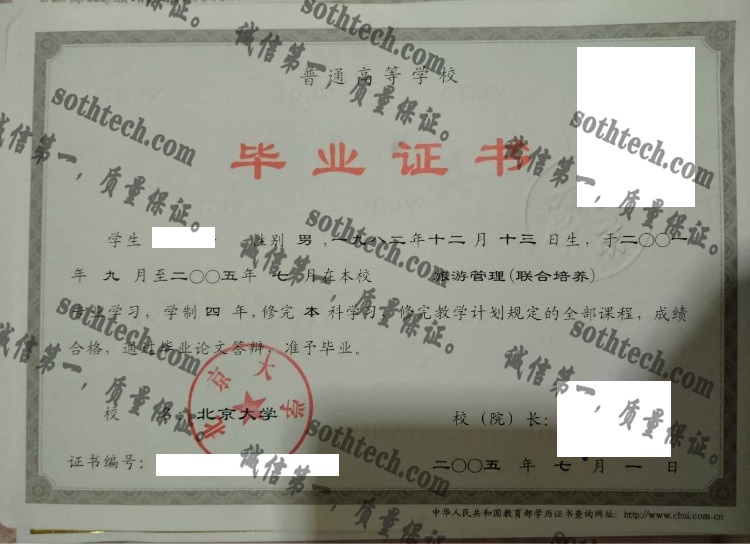 普通高等学校
毕业证书
学生 性别 男 ,一九八三年十二月十三日生，于二〇〇一
年 九 月至二〇〇五年 七 月在本校 旅游管理(联合培养)
专业学习，学制 四 年,修完 本 科学习，修完教学计划规定的全部课程，成绩
合格，通过毕业论文答辩，准予毕业。
校 名：北京大学 校（院）长：
北京大学
证书编号： 二〇〇五 年 七 月 一 日
中华人民共和国教育部学历证书查询网址：http://www.chsi.com.cn
sothtech.com
诚信第一，质量保证。
sothtech.com
诚信第一，质量保证。
sothtech.com
诚信第一，质量保证。
sothtech.com
诚信第一，质量保证。
sothtech.com
诚信第一，质量保证。
sothtech.com
诚信第一，质量保证。
sothtech.com
诚信第一，质量保证。
sothtech.com
诚信第一，质量保证。